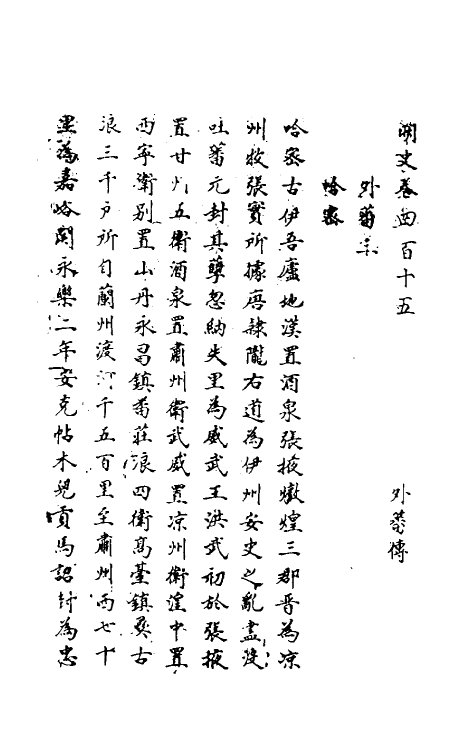 明史卷四百十五
外蕃傳
外蕃三
哈密
哈密古伊吾廬地漢置酒泉張掖燉煌三郡晋為凉
州牧張寔所據唐隷隴右道為伊州安史之亂盡沒
吐蕃元封其孽忽納失里為威武王洪武初於張掖
置甘州五衛酒泉置肅州衛武威置凉州衛湟中置
西寧衛别置山丹永昌鎮畨莊浪四衛髙臺鎮夷古
浪三千戶所自蘭州渡河千五百里至肅州西七十
里為嘉峪関永樂二年安克帖木兒貢馬詔封為忠